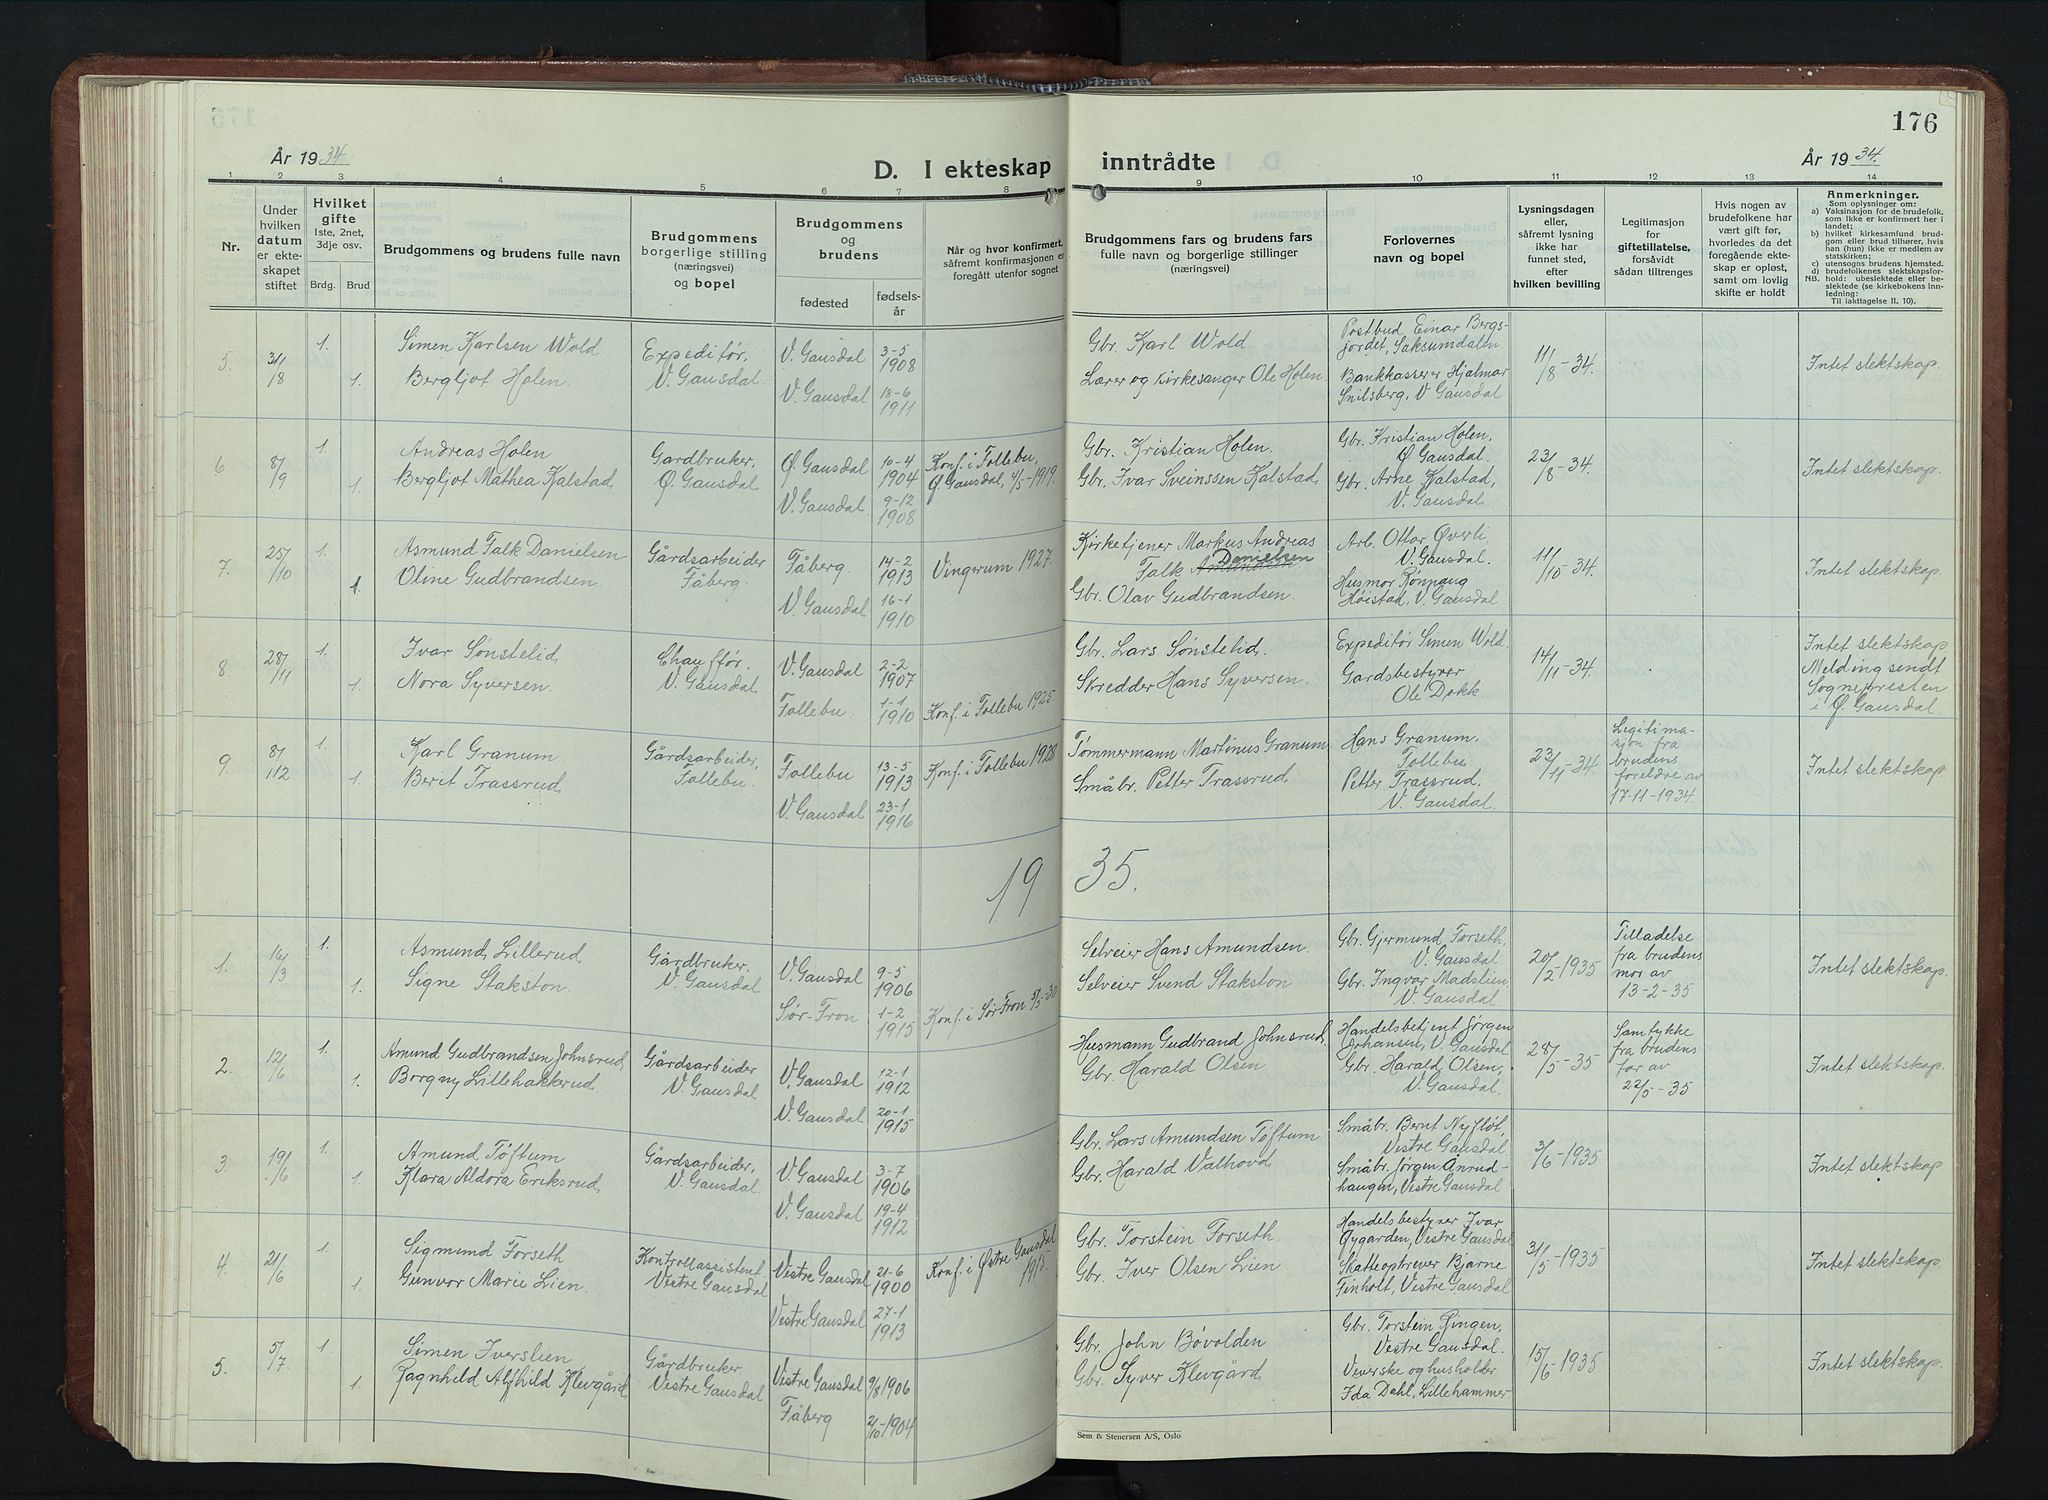 176
År 1934.
D. I ekteskap inntrådte
År 1934.
1 2 3 4 5 6 7 8 9 10 11 12 13 14
Nr.
Under hvilken datum er ekteskapet stiftet
Hvilket gifte
1ste, 2net, 3dje osv.
Brdg. Brud
Brudgommens og brudens fulle navn
Brudgommens borgerlige stilling (næringsvei) og bopel
Brudgommens og brudens
fødested
fødselsår
Når og hvor konfirmert, såfremt konfirmasjonen er foregått utenfor sognet
Brudgommens fars og brudens fars fulle navn og borgerlige stillinger (næringsvei)
Forlovernes navn og bopel
Lysningsdagen eller, såfremt lysning ikke har funnet sted, efter hvilken bevilling
Legitimasjon for giftetillatelse, forsåvidt sådan tiltrenges
Hvis nogen av brudefolkene har vært gift før, hvorledes da det foregående ekteskap er opløst, samt om lovlig skifte er holdt
Anmerkninger.
Som oplysninger om:
a) Vaksinasjon for de brudefolk, som ikke er konfirmert her i landet;
b) hvilket kirkesamfund brudgom eller brud tilhører, hvis han (hun) ikke er medlem av statskirken;
c) utensogns brudens hjemsted.
d) brudefolkenes slektskapsforhold: ubeslektede eller beslektede (se kirkebokens innledning:
NB.
Til iakttagelse II. 10).
5. 31/8 1. Simen Karlsen Wold Expeditør, V. Gausdal. V. Gausdal 3-5 1908 Gbr. Karl Wold Postbud Einar Bergsjordet, Saksumdalen 11/8-34. Intet slektskap.
1. Bergljot Holen. V. Gausdal 18-6 1911 Lærer og kirkesanger Ole Holen Bankkasserer Hjalmar Snilsberg, V Gausdal
6 8/9 1. Andreas Holen Gardbruker, Ø. Gausdal Ø. Gausdal 10-4 1904 Konf. i Follebu, Ø. Gausdal, 4/5-1919. Gbr. Kristian Holen. Gbr. Kristian Holen, Ø. Gausdal. 23/8-34. Intet slektskap.
1. Bergljot Mathea Kalstad V. Gausdal 9-12 1908 Gbr. Ivar Sveinssen Kalstad Gbr. Arne Kalstad, V. Gausdal.
7. 25/10 1. Asmund Falk Danielsen Gårdsarbeider Fåberg. Fåberg. 14-2 1913 Vingerum 1927. Kirketjener Markus Andreas Falk Danielsen Arb. Ottar Øverli V. Gausdal. 11/10-34. Intet slektskap.
1. Oline Gudbrandsen V. Gausdal 16-1 1910 Gbr. Olav Gudbrandsen. Husmor Rönnaug Höistad, V. Gausdal
8. 28/11 1. Ivar Sønstelid Chauffør. V. Gausdal V. Gausdal 2-2 1907 Gbr. Lars Sønstelid. Expeditør Simen Wold 14/11-34. Intet slektskap. Melding sendt Sognepresten i Ø. Gausdal.
1. Nora Syversen Follebu. 1-1 1910 Konf. i Follebu 1925. Skredder Hans Syversen. Gardsbestyrer Ole Dokk.
9. 8/12 1. Karl Granum Gårdsarbeider, Follebu. Follebu 13-5 1913 Konf. i Follebu 1928 Tømmermann Martinus Granum Hans Granum, Follebu 23/11-34. Legitimasjon fra brudens foreldre av 17-11-1934. Intet slektskap.
1. Berit Trassrud V. Gausdal 23-1 1916 Småbr. Petter Trassrud Petter Trassrud, V. Gausdal.
1935.
1. 16/3 1. Asmund Lillerud Gårdbruker, V. Gausdal V. Gausdal 9-5 1906 Selveier Hans Amundsen. Gbr. Gjermund Forseth, V. Gausdal 20/2-1935 Tilladelse fra brudens mor av 13-2-35 Intet slektskap.
1. Signe Stakston. Sør-Fron 1-2 1915 Konf. i Sør Fron Selveier Svend Stakston Gbr. Ingvar Madslien V. Gausdal
2. 12/6 1. Amund Gudbrandsen Johnsrud Gårdsarbeider V. Gausdal V. Gausdal 12-1 1912 Husmann Gudbrand Johnsrud. Handelsbetjent Jørgen V. Gausdal 28/5-35 Samtykke fra brudens far av 22/5-35 Intet slektskap.
1. Borgny Lillehakkerud V. Gausdal 20-1 1915 Gbr. Harald Olsen Gbr. Harald Olsen, V. Gausdal
3. 19/6 1. Amund Tøftum Gårdsarbeider, V. Gausdal. V. Gausdal 3-7 1906 Gbr. Lars Amundsen Tøftum Småbr. Bernt Nyfløt, Vestre Gausdal 3/6-1935 Intet slektskap.
1. Klara Aldora Eriksrud V. Gausdal 19-4 1912 Gbr. Harald Valhovd Småbr. Jørgen Ånrudhaugen, Vestre Gausdal
4. 21/6 1. Sigmund Forseth Kontrollassistent Vestre Gausdal Vestre Gausdal 21-6 1900 Konf. i Østre Gausdal 1915. Gbr. Torstein Forseth. Handelsbestyrer Ivar Øygarden, Vestre Gausdal 31/5-1935 Intet slektskap.
1. Gunvor Marie Lien. Vestre Gausdal 27-1 1913 Gbr. Iver Olsen Lien Skatteoppkrever Bjarne Finholt, Vestre Gausdal
5. 5/7 1. Simen Iverslien Gårdbruker Vestre Gausdal Vestre Gausdal 9/8 1906 Gbr. John Bövolden Gbr. Torstein Ringen, Vestre Gausdal. 15/6-1935 Intet slektskap.
1. Ragnhild Alfhild Klevgård Fåberg 2/10-1904 Gbr. Syver Klevgård Veverske og husholder Ida Dahl, Lillehammer
Sem & Stenersen A/S, Oslo